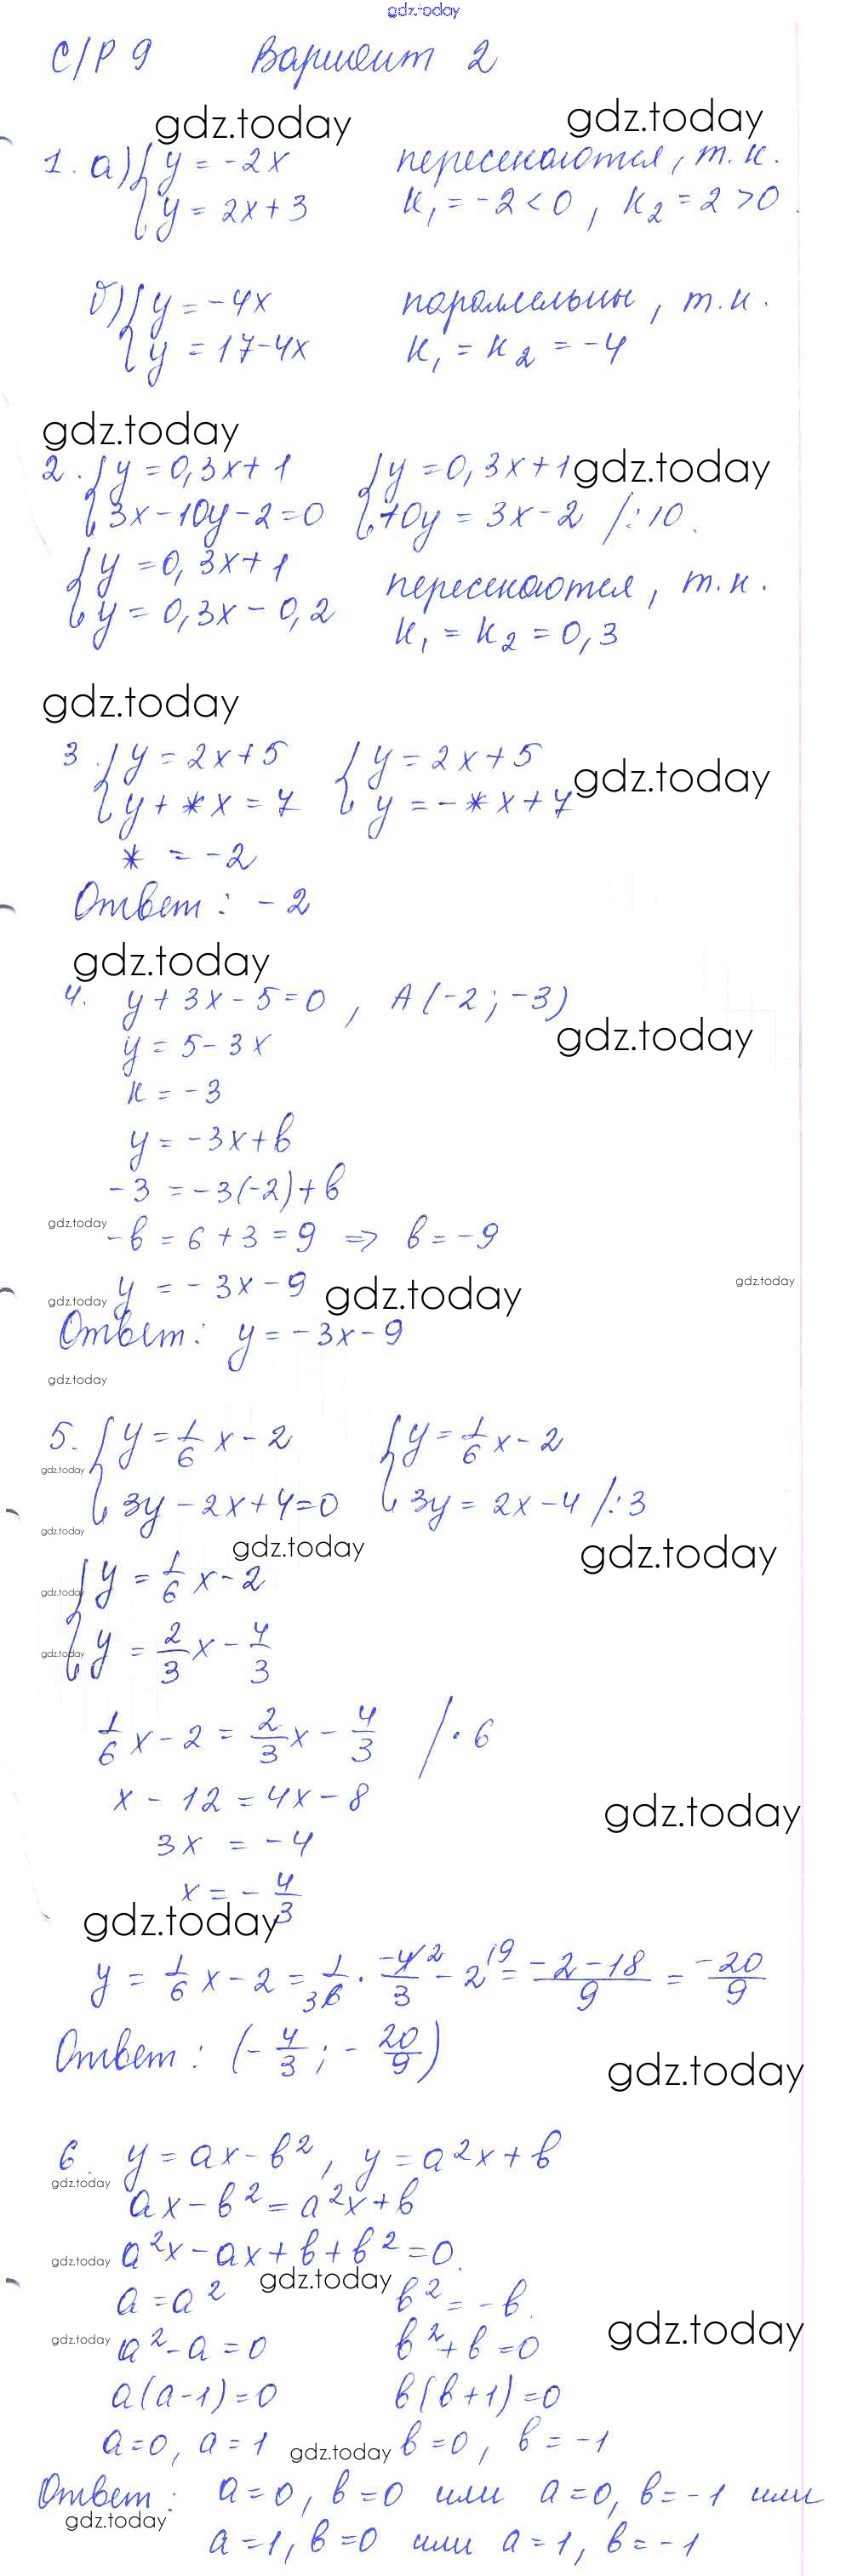 gdz.today
С/Р 9 Вариант 2
gdz.today gdz.today
1. а) { y = -2x пересекаются, т.к.
{ y = 2x+3 k₁ = -2 < 0, k₂ = 2 > 0.
б) { y = -4x параллельны, т.к.
{ y = 17-4x k₁ = k₂ = -4
gdz.today
2. { y = 0,3x+1 { y = 0,3x+1 gdz.today
{ 3x-10y-2=0 { 10y = 3x-2 /:10
{ y = 0,3x+1
пересекаются, т.к.
{ y = 0,3x-0,2
k₁ = k₂ = 0,3
gdz.today
3. { y = 2x+5 { y = 2x+5 gdz.today
{ y + *x = 7 { y = -*x+7
* = -2
Ответ: -2
gdz.today
4. y + 3x - 5 = 0, A(-2; -3)
gdz.today
y = 5-3x
k = -3
y = -3x+b
-3 = -3(-2)+b
gdz.today -b = 6+3 = 9 => b = -9
gdz.today y = -3x-9 gdz.today gdz.today
Ответ: y = -3x-9
gdz.today
5. { y = 1/6 x - 2 { y = 1/6 x - 2
gdz.today
{ 3y - 2x + 4 = 0 { 3y = 2x - 4 /:3
gdz.today
gdz.today gdz.today
{ y = 1/6 x - 2
gdz.today
{ y = 2/3 x - 4/3
gdz.today
1/6 x - 2 = 2/3 x - 4/3 /·6
x - 12 = 4x - 8
gdz.today
3x = -4
x = -4/3
gdz.today
y = 1/6 x - 2 = 1/6 3 · -4/3 2 - 2 \9 = -2-18/9 = -20/9
Ответ: (-4/3; -20/9)
gdz.today
6. y = ax - b², y = a²x + b
gdz.today
ax - b² = a²x + b
gdz.today a²x - ax + b + b² = 0
gdz.today
a = a² b² = -b
gdz.today
gdz.today a² - a = 0 b² + b = 0
a(a-1) = 0 b(b+1) = 0
a = 0, a = 1 gdz.today b = 0, b = -1
Ответ: a = 0, b = 0 или a = 0, b = -1 или
gdz.today
a = 1, b = 0 или a = 1, b = -1